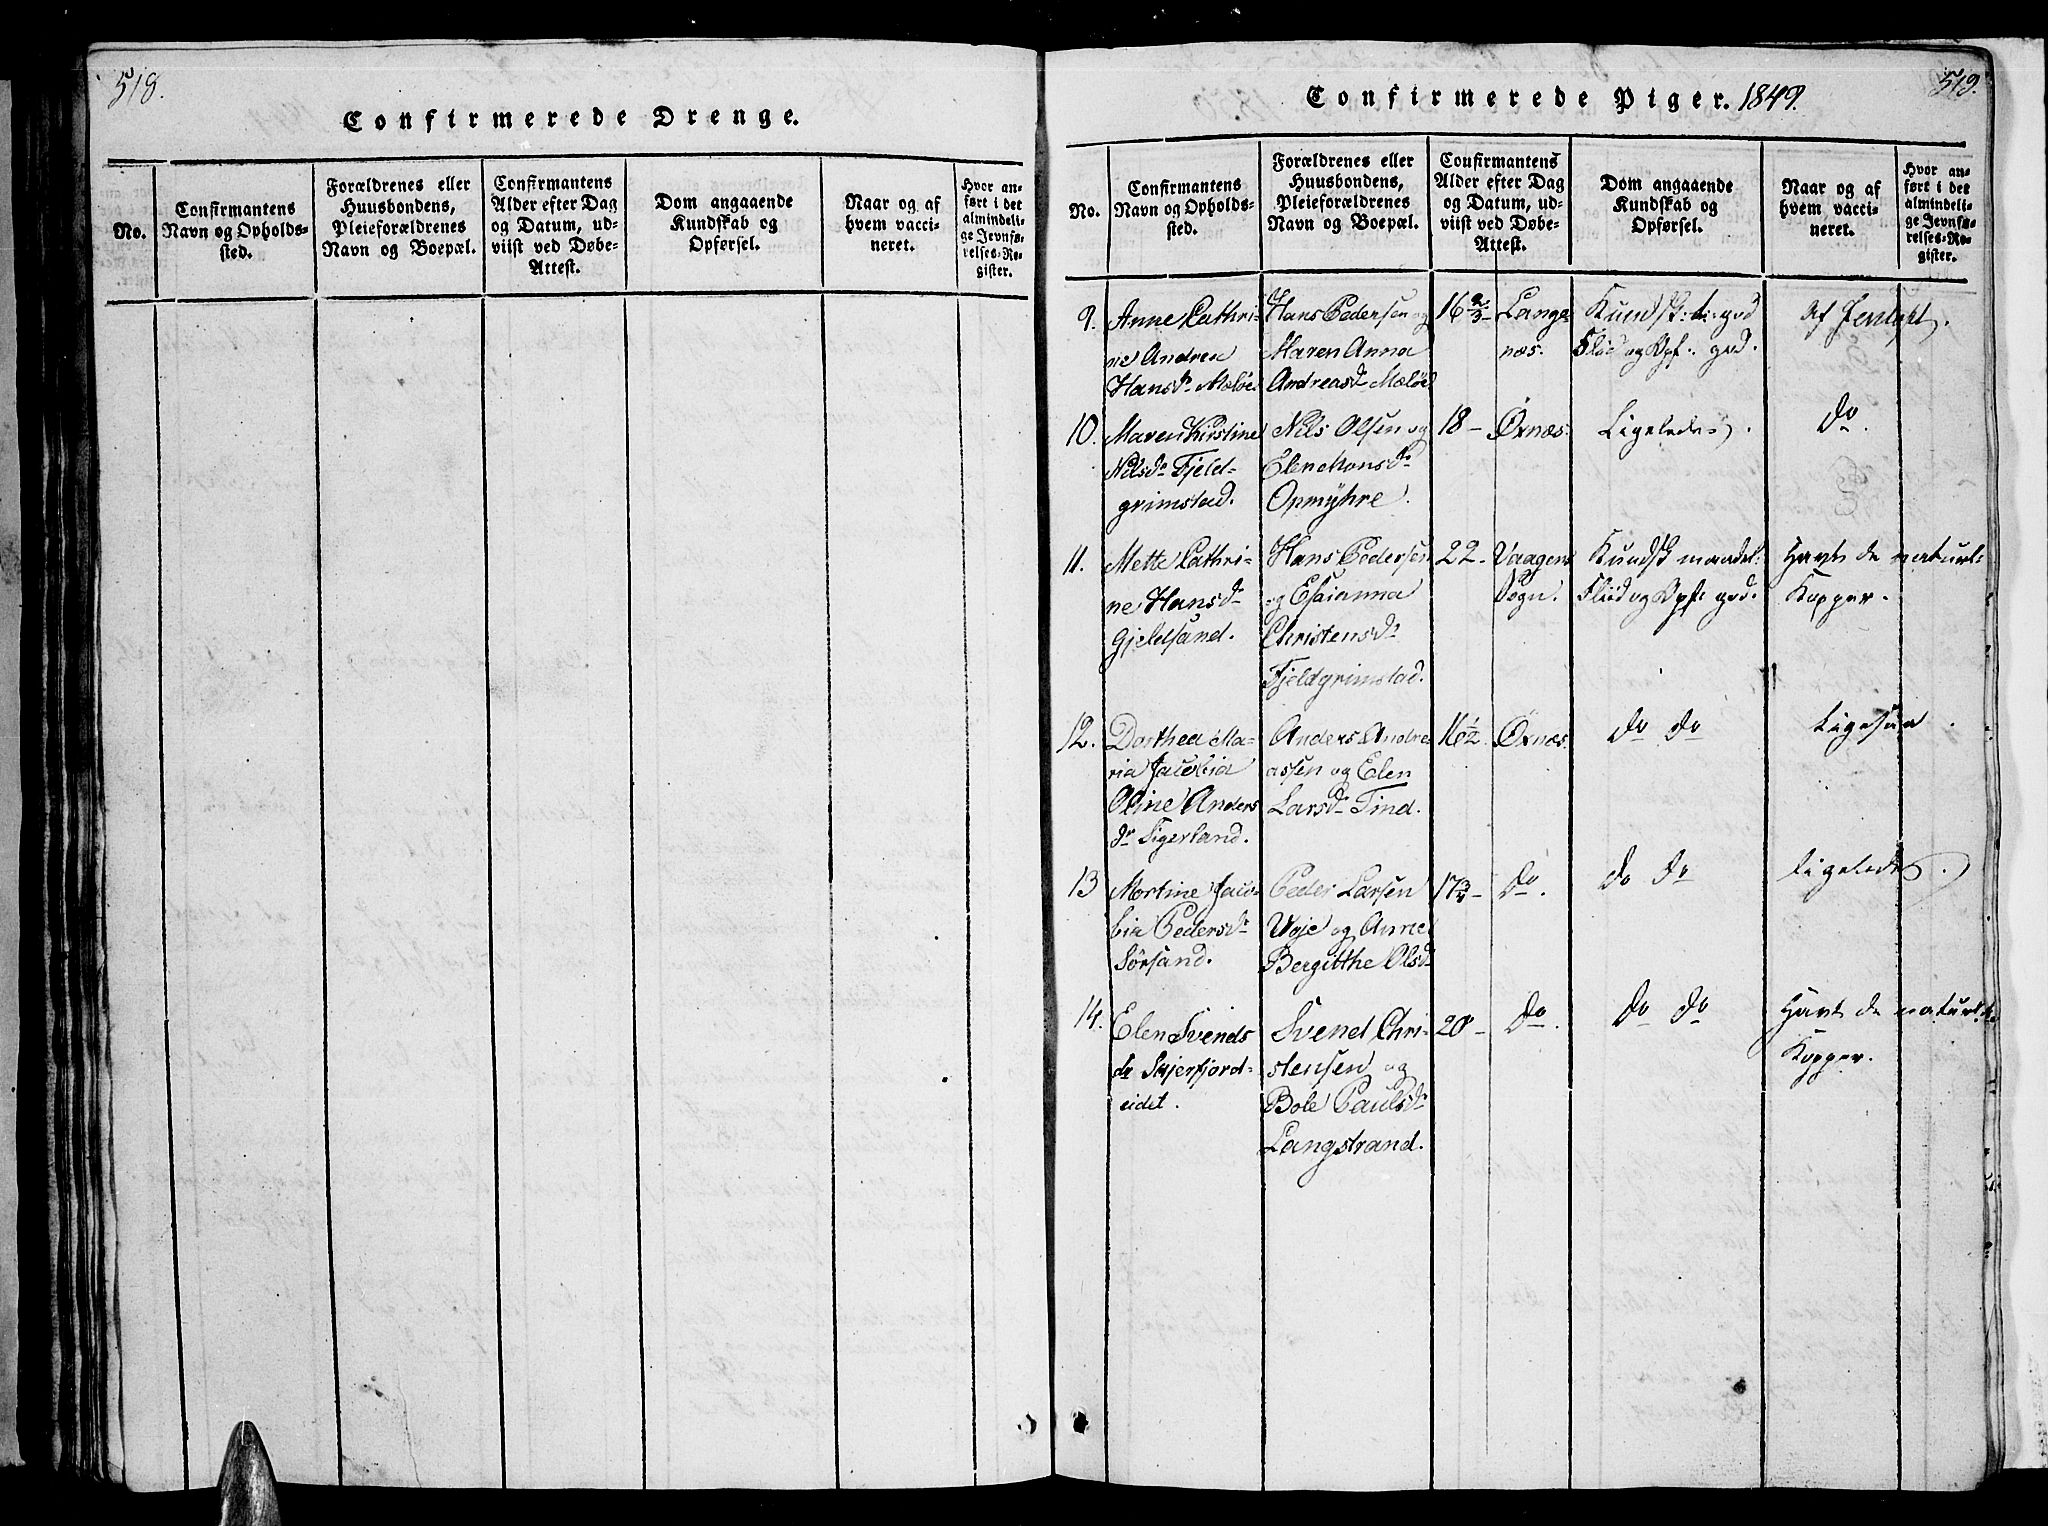 518.
Confirmerede Drenge.
No.
Confirmantens
Navn og Opholds-
sted.
Forældrenes eller
Huusbondens,
Pleieforældrenes
Navn og Boepæl.
Confirmantens
Alder efter Dag
og Datum, ud-
viist ved Døbe-
Attest.
Dom angaaende
Kundskab og
Opførsel.
Naar og af
hvem vacci-
neret.
Hvor an-
ført i det
almindeli-
ge Jevnfø-
relses-Re-
gister.
Confirmerede Piger. 1849.
519.
No.
Confirmantens
Navn og Opholds-
sted.
Forældrenes eller
Huusbondens,
Pleieforældrenes
Navn og Boepæl.
Confirmantens
Alder efter Dag
og Datum, ud-
viist ved Døbe-
Attest.
Dom angaaende
Kundskab og
Opførsel.
Naar og af
hvem vacci-
neret.
Hvor an-
ført i det
almindeli-
ge Jevnfø-
relses-Re-
gister.
9.
Anne Cathri-
ne Andrea
Hansdr Meløe
Hans Pedersen og
Maren Anna
Andreasdr Meløe
16 2/3
Lange-
næs.
Kundsk: t: god
Fliid og Opf: god.
Af
10.
Maren Kirstine
Nilsdr Fjeld-
grimstad.
Nils Olsen og
Elen Monsdr
Opmyhre.
18 -
Ørnæs.
Ligeledes.
do.
11.
Mette Cathri-
ne Hansdr
Gjeldsand.
Hans Pedersen
og Esaianna
Christensdr
Fjeldgrimstad.
22.
Vaagens
Sogn.
Kundsk maadel:
Fliid og Opf: god.
Havt de naturl:
Kopper.
12.
Dorthea Ma-
ria Jacobia
Oline Anders
dr Sigerland.
Anders Andre-
assen og Elen
Larsdr Tind.
16 1/2.
Ørnæs.
do do
Ligesaa.
13
Mortine Jaco-
bia Pedersdr
Sørsand.
Peder Larsen
Ugje og Anne
Bergitthe Olsdr
17 3/4 -
do.
do do
ligeledes.
14.
Elen Svends
dr Skjerfjord-
eidet.
Svend Chri-
stensen og
Bole Paulsdr
Langstrand.
20 -
do.
do do
Havt de naturl:
Kopper.